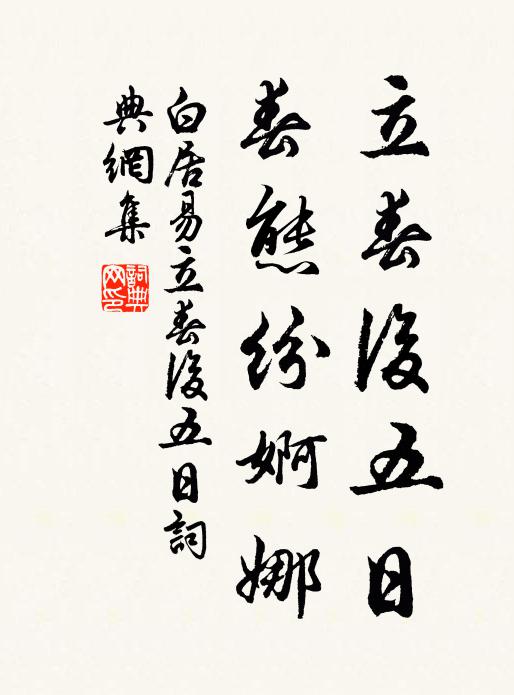 立春後五日
春態紛婀娜
白居易立春後五日詞
典網集
詞典网印